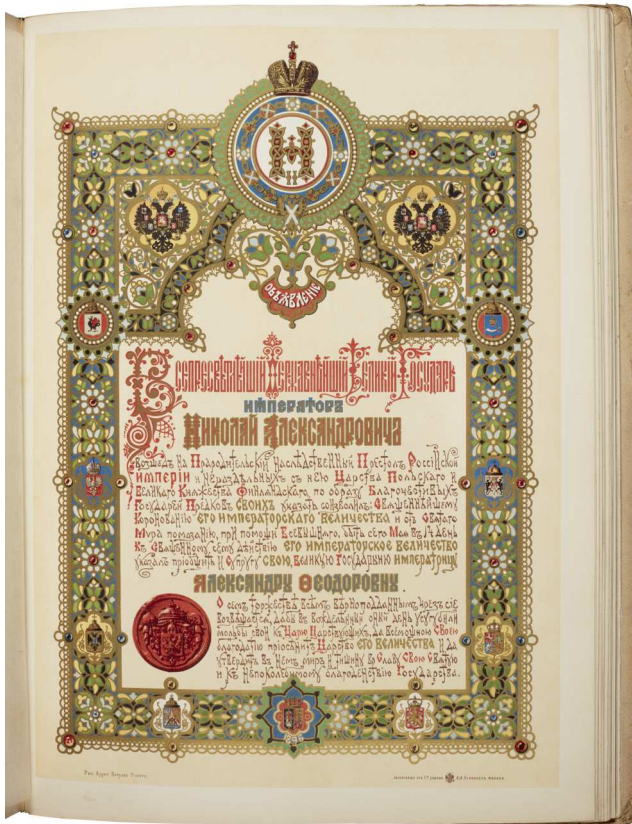 Н
II
ОБЪЯВЛЕНІЕ
ВСЕПРЕСВѢТЛѢЙШІЙ ДЕРЖАВНѢЙШІЙ ВЕЛИКІЙ ГОСУДАРЬ
ИМПЕРАТОРЪ
НИКОЛАЙ АЛЕКСАНДРОВИЧЪ
Восшедъ на Прародительскій Наслѣдственный Престолъ Россійской
ИМПЕРІИ и Нераздѣльныхъ съ нею Царства Польскаго и
Великаго Княжества Финляндскаго, по образу Благочестивыхъ
Государей Предковъ СВОИХЪ указать соизволилъ: Священнѣйшему
Коронованію ЕГО ИМПЕРАТОРСКАГО ВЕЛИЧЕСТВА и отъ Святаго
Мѵра помазанію, при помощи Всевышняго, быть сего Мая въ 14 день
Къ Священному сему дѣйствію ЕГО ИМПЕРАТОРСКОЕ ВЕЛИЧЕСТВО
указалъ пріобщить и Супругу СВОЮ, Великую Государыню ИМПЕРАТРИЦУ
АЛЕКСАНДРУ ѲЕОДОРОВНУ.
О семъ торжествѣ всѣмъ вѣрноподданнымъ чрезъ сіе
возвѣщается, дабы въ вожделѣнный оный день усугубили
мольбы свои къ Царю Царствующихъ, да Всемощною Своею
благодатію пріосѣнитъ Царство ЕГО ВЕЛИЧЕСТВА и да
утвердитъ въ немъ миръ и тишину во Славу Свою Святую
и къ непоколебимому благоденствію Государства.